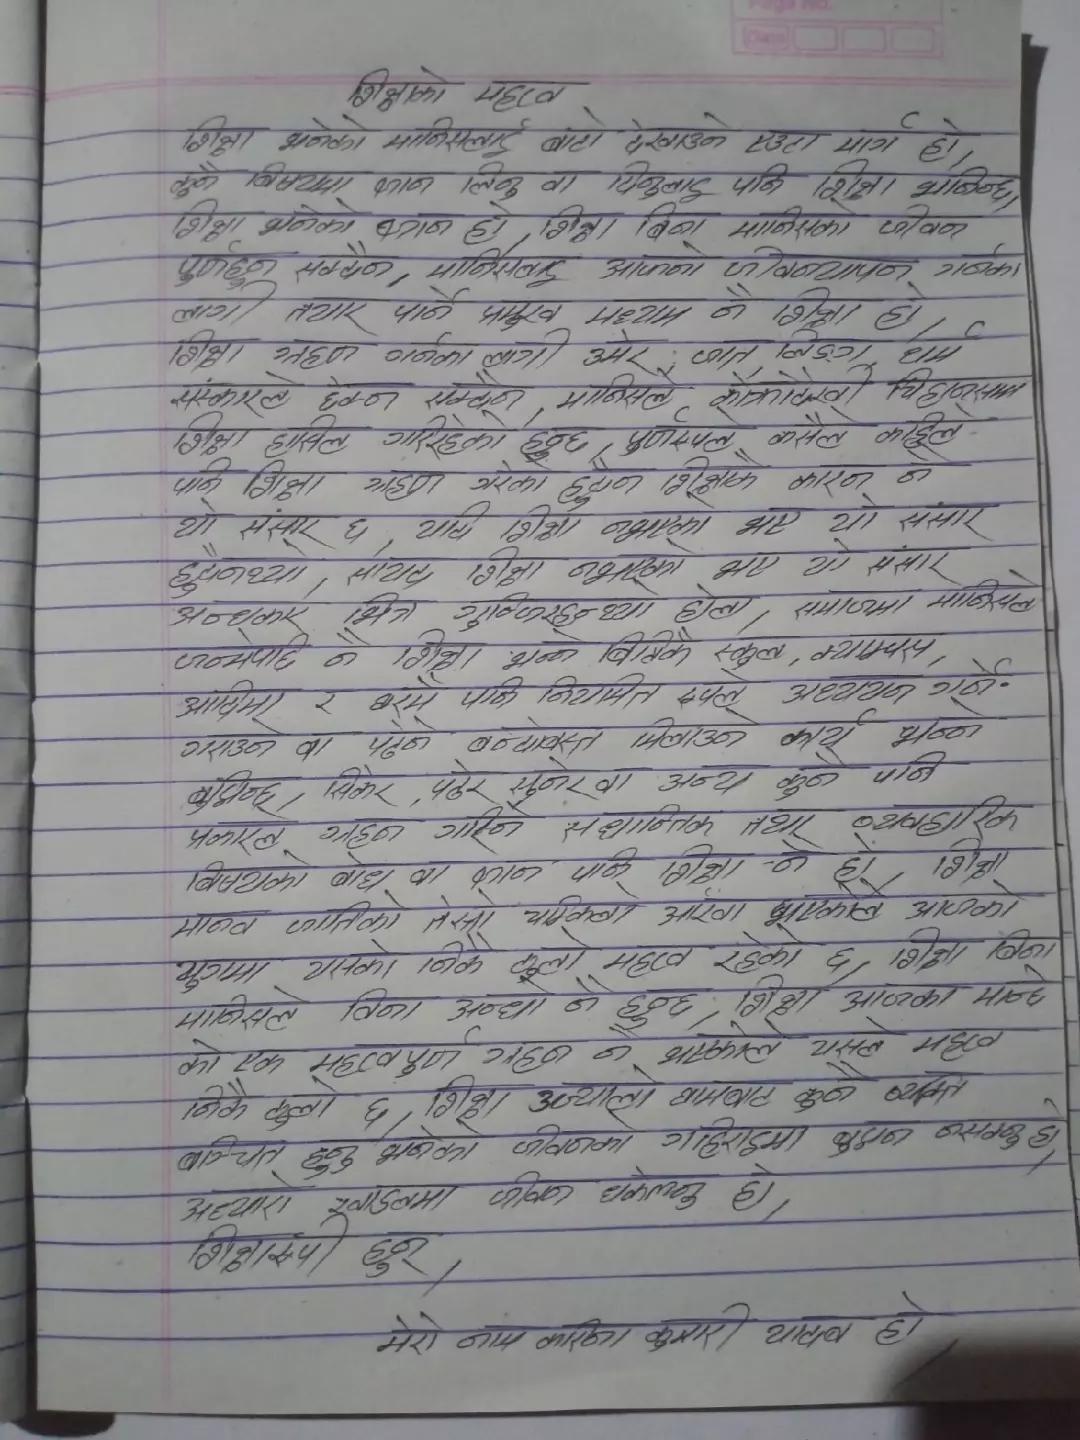 Page No.
Date
शिक्षाको महत्व
शिक्षा भनेको मानिसलाई बाटो देखाउने एउटा मार्ग हो,
कुनै बिषयमा ज्ञान लिनु वा दिनुलाइ पनि शिक्षा भनिन्छ,
शिक्षा भनेको ज्ञान हो, शिक्षा बिना मानिसको जीवन
पुर्णहुन सक्दैन, मानिसलाइ आफ्नो जीवनयापन गर्नका
लागी तयार पार्ने प्रमुख मध्याम नै शिक्षा हो,
शिक्षा ग्रहण गर्नका लागी उमेर, जात, लिङग, धर्म
संस्कारले छेक्न सक्दैन, मानिसले कोक्रोदेखी चिहानसम्म
शिक्षा हासिल गरिरहेको हुन्छ, पुर्णरुपले कसैले कहिले
पनि शिक्षा ग्रहण गरेको हुदैन शिक्षाकै कारन नै
यो संसार छ, यदि शिक्षा नभएको भए यो संसार
हुदैनथ्यो, सायद शिक्षा नभएको भए यो संसार
अन्धकार भित्र होला, समाजमा मानिसले
जन्मेपछि नै शिक्षा भन्ने बितिकै स्कुल, क्याम्पस,
आदिमा र घरमै पनि नियमित रुपले अध्ययन गर्ने-
गराउने वा पढ्ने बन्दोबस्त मिलाउने कार्य भन्ने
बुझिन्छ, सिकेर, पढेर सुनेर वा अन्य कुनै पनि
प्रकारले ग्रहन गरिने सैधान्तिक तथा व्यवहारिक
बिषयको बोध वा ज्ञान पनि शिक्षा नै हो, शिक्षा
मानव जातिको तेस्रो आँखा भएकोले आजको
युगमा यसको निकै ठुलो महत्व रहेको छ, शिक्षा बिना
मानिसले बिना अन्धो नै हुन्छ, शिक्षा आजका मान्छे
को एक महत्वपुर्ण गहना नै भएकोले यसले महत्व
निकै ठुलो छ, शिक्षा उज्यालो घामबाट कुनै व्यक्ति
बन्चित हुनु भनेको जीवनको गहिराइमा बुझ्न नसक्नु हो,
अध्यारो खाडलमा जीवन धकेल्नु हो,
शिक्षारुपी हुन्छ,
मेरो नाम करिना कुमारी यादव हो,